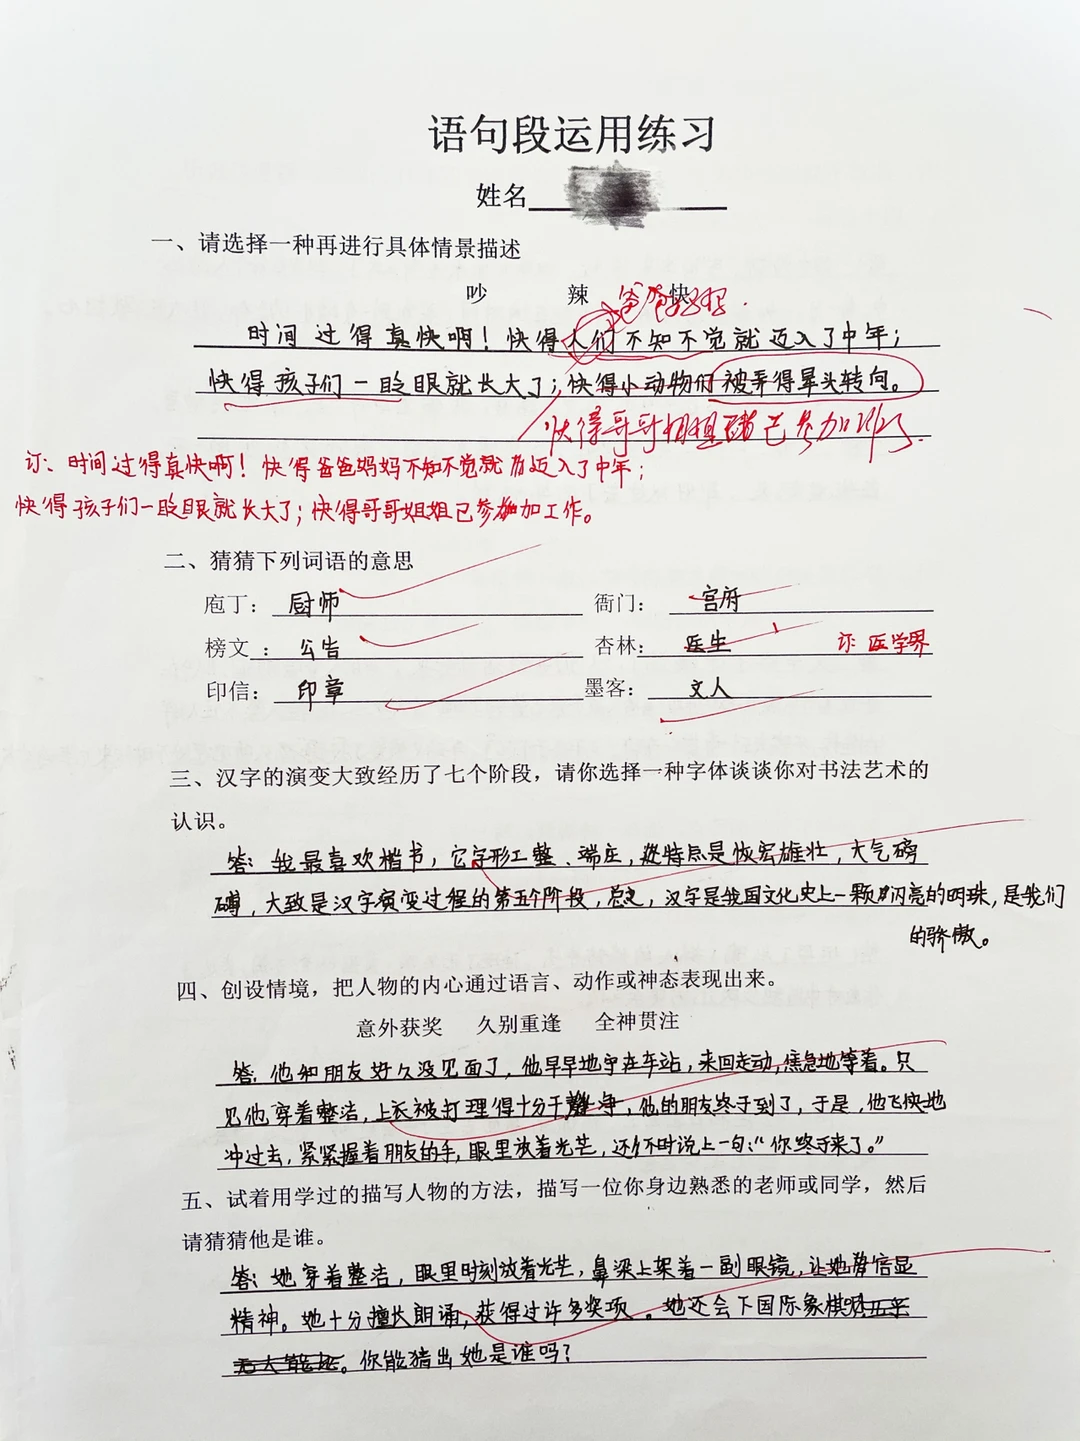 语句段运用练习
姓名
一、请选择一种再进行具体情景描述
吵 辣 快
爸爸妈妈.
时间过得真快啊！快得人们不知不觉就迈入了中年；
快得孩子们一眨眼就长大了；快得小动物们被弄得晕头转向。
快得哥哥姐姐已参加工作.
订：时间过得真快啊！快得爸爸妈妈不知不觉就迈入了中年；
快得孩子们一眨眼就长大了；快得哥哥姐姐已参加工作。
二、猜猜下列词语的意思
庖丁： 厨师 衙门： 官府
榜文： 公告 杏林： 医生 订：医学界
印信： 印章 墨客： 文人
三、汉字的演变大致经历了七个阶段，请你选择一种字体谈谈你对书法艺术的
认识。
答：我最喜欢楷书，它字形工整、端庄，特点是恢宏雄壮，大气磅
礴，大致是汉字演变过程的第五个阶段，总之，汉字是我国文化史上一颗闪亮的明珠，是我们
的骄傲。
四、创设情境，把人物的内心通过语言、动作或神态表现出来。
意外获奖 久别重逢 全神贯注
答：他和朋友好久没见面了，他早早地守在车站，来回走动，焦急地等着。只
见他穿着整洁，上衣被打理得十分干净，他的朋友终于到了，于是，他飞快地
冲过去，紧紧握着朋友的手，眼里放着光芒，还不时说上一句：“你终于来了。”
五、试着用学过的描写人物的方法，描写一位你身边熟悉的老师或同学，然后
请猜猜他是谁。
答：她穿着整洁，眼里时刻放着光芒，鼻梁上架着一副眼镜，让她倍显
精神。她十分擅长朗诵，获得过许多奖项。她还会下国际象棋
。你能猜出她是谁吗？